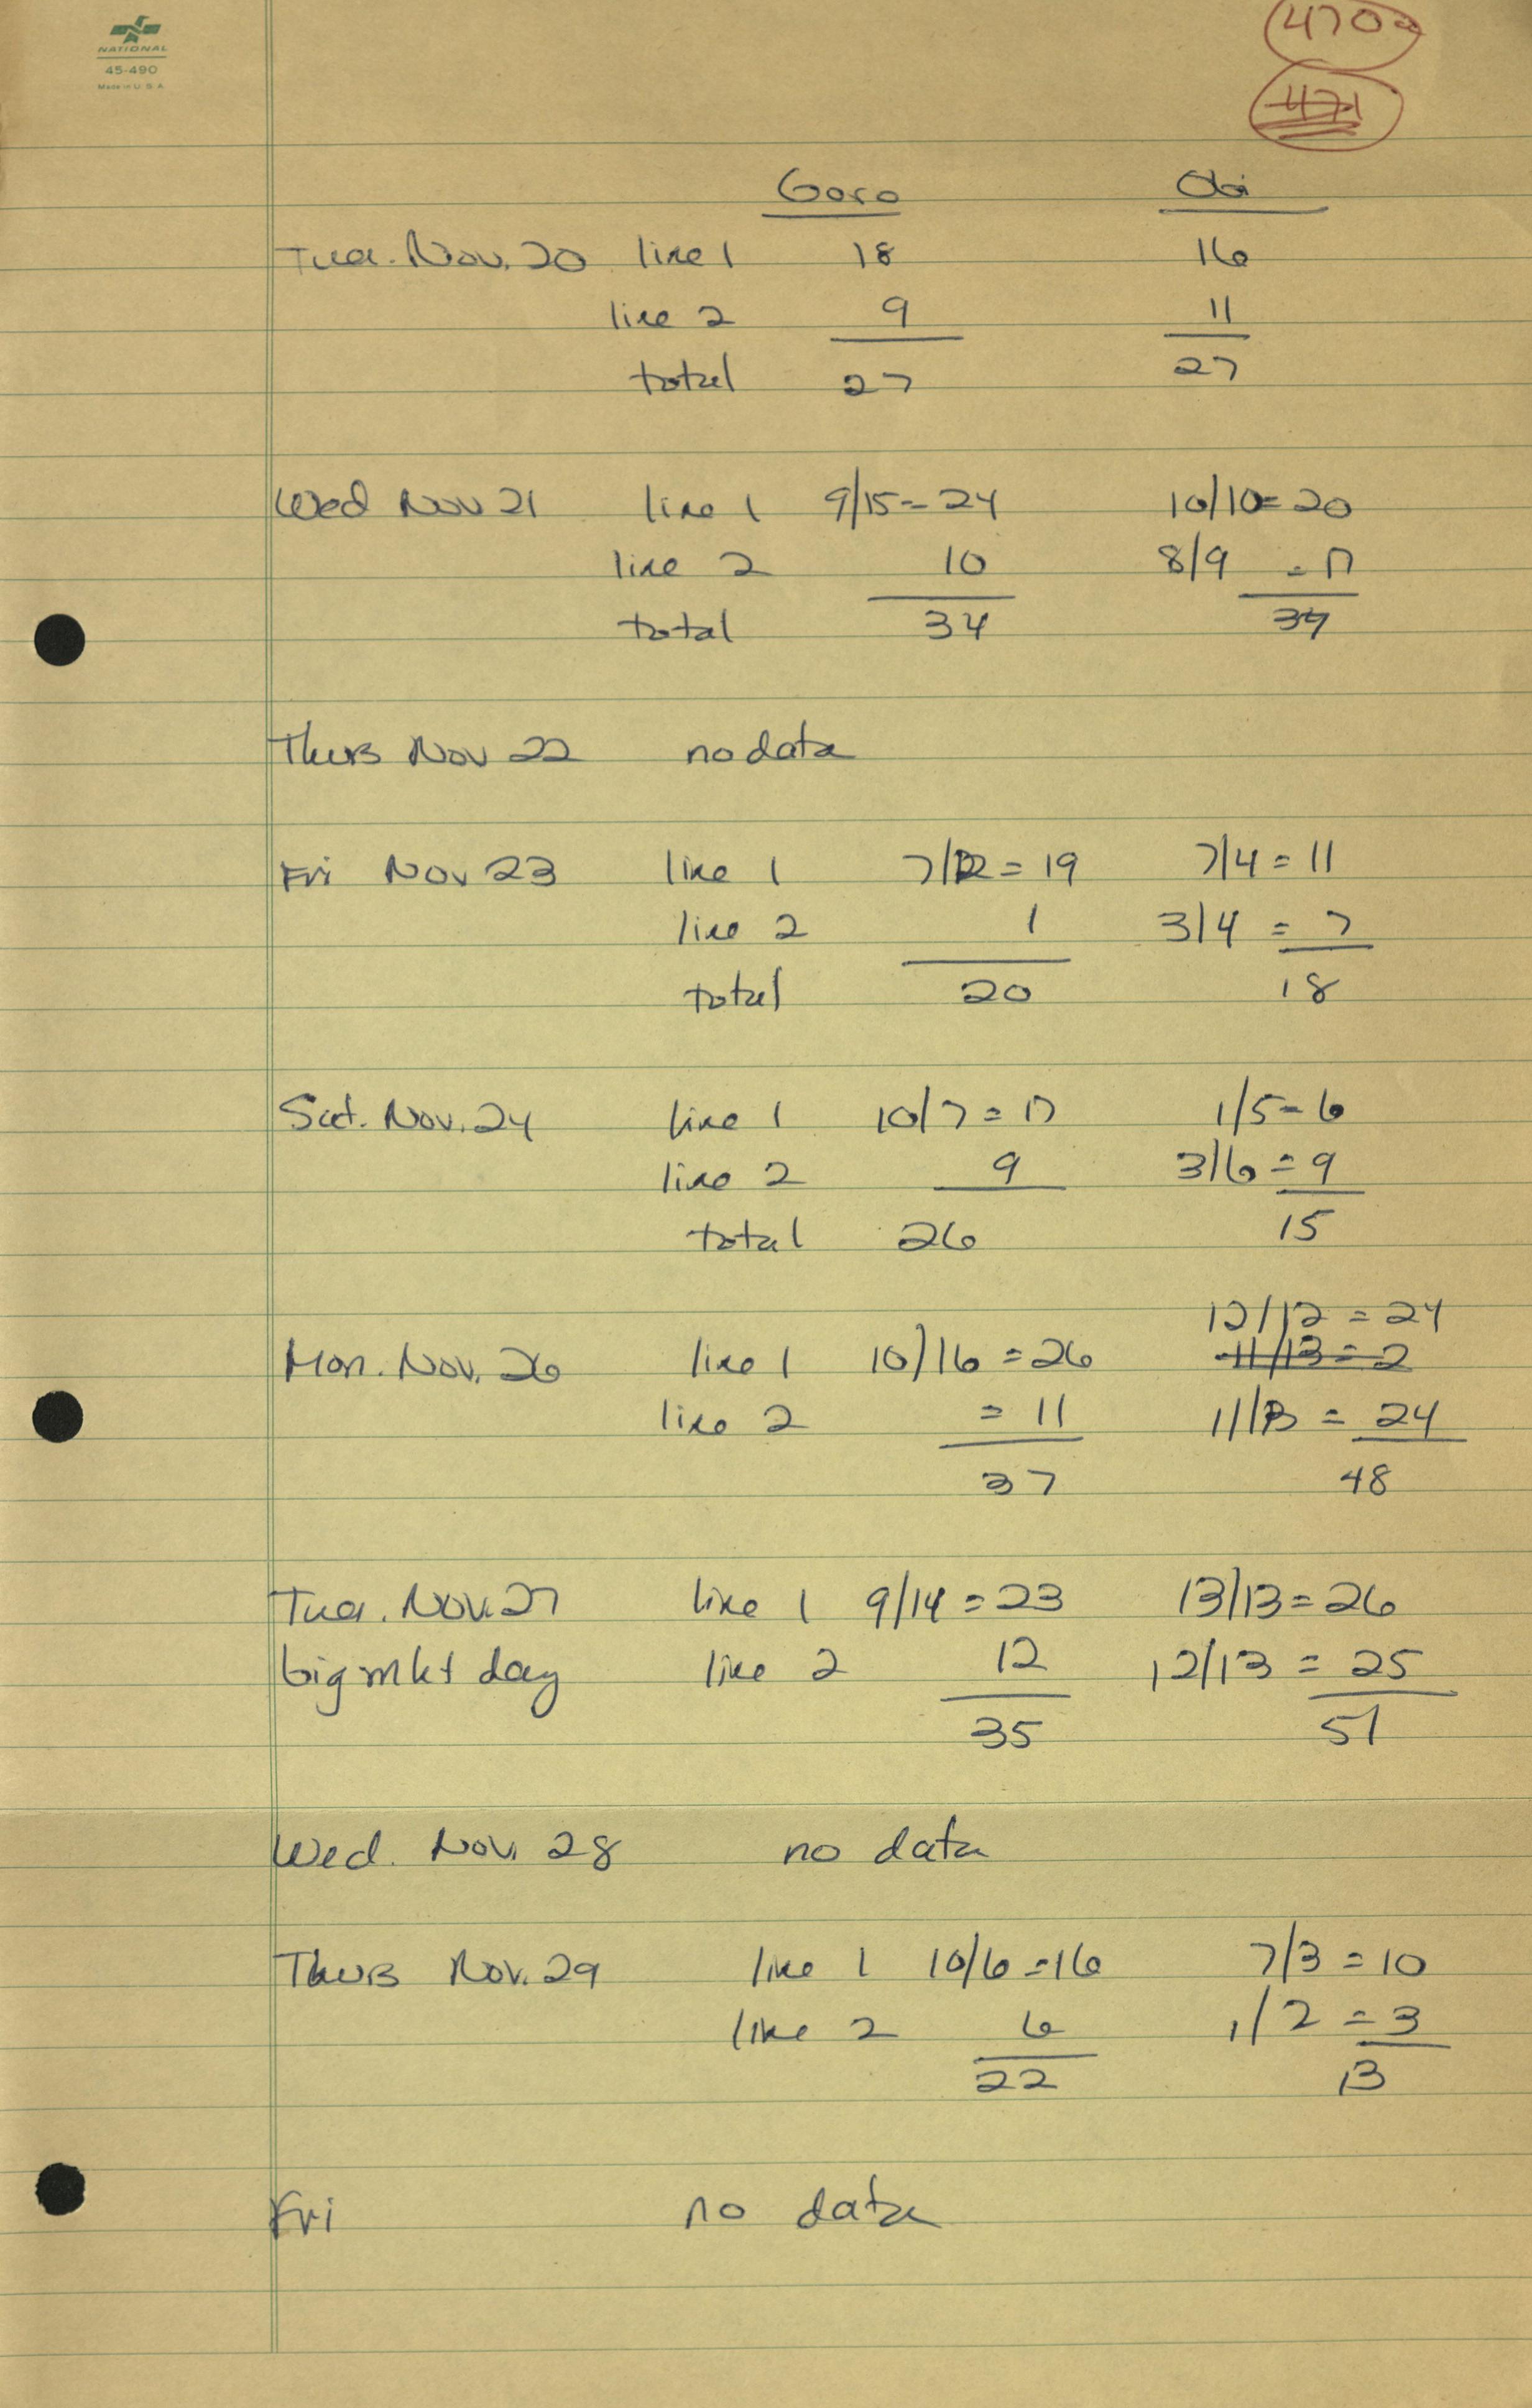 NATIONAL
45-490
Made in U S A
470a
471
Goro Obi
Tues. Nov. 20 line 1 18 16
line 2 9 11
total 27 27
Wed Nov 21 line 1 9/15 = 24 10/10 = 20
line 2 10 8/9 = 17
total 34 37
Thurs Nov 22 no data
Fri Nov 23 line 1 7/12 = 19 7/4 = 11
line 2 1 3/4 = 7
total 20 18
Sat. Nov. 24 line 1 10/7 = 17 1/5 = 6
line 2 9 3/6 = 9
total 26 15
12/12 = 24
Mon. Nov. 26 line 1 10/16 = 26 11/13 = 2
line 2 = 11 11/13 = 24
37 48
Tues. Nov. 27 line 1 9/14 = 23 13/13 = 26
big mkt day line 2 12 12/13 = 25
35 51
Wed. Nov. 28 no data
Thurs Nov. 29 line 1 10/6 = 16 7/3 = 10
line 2 6 1/2 = 3
22 13
Fri no data